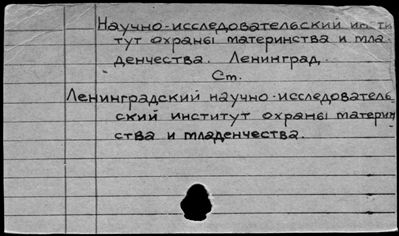 Научно-исследовательский инсти
тут охраны материнства и мла-
денчества. Ленинград.
См.
Ленинградский научно-исследователь-
ский институт охраны материн
ства и младенчества.